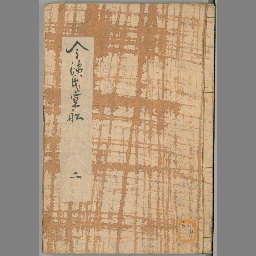 今源氏空船 二